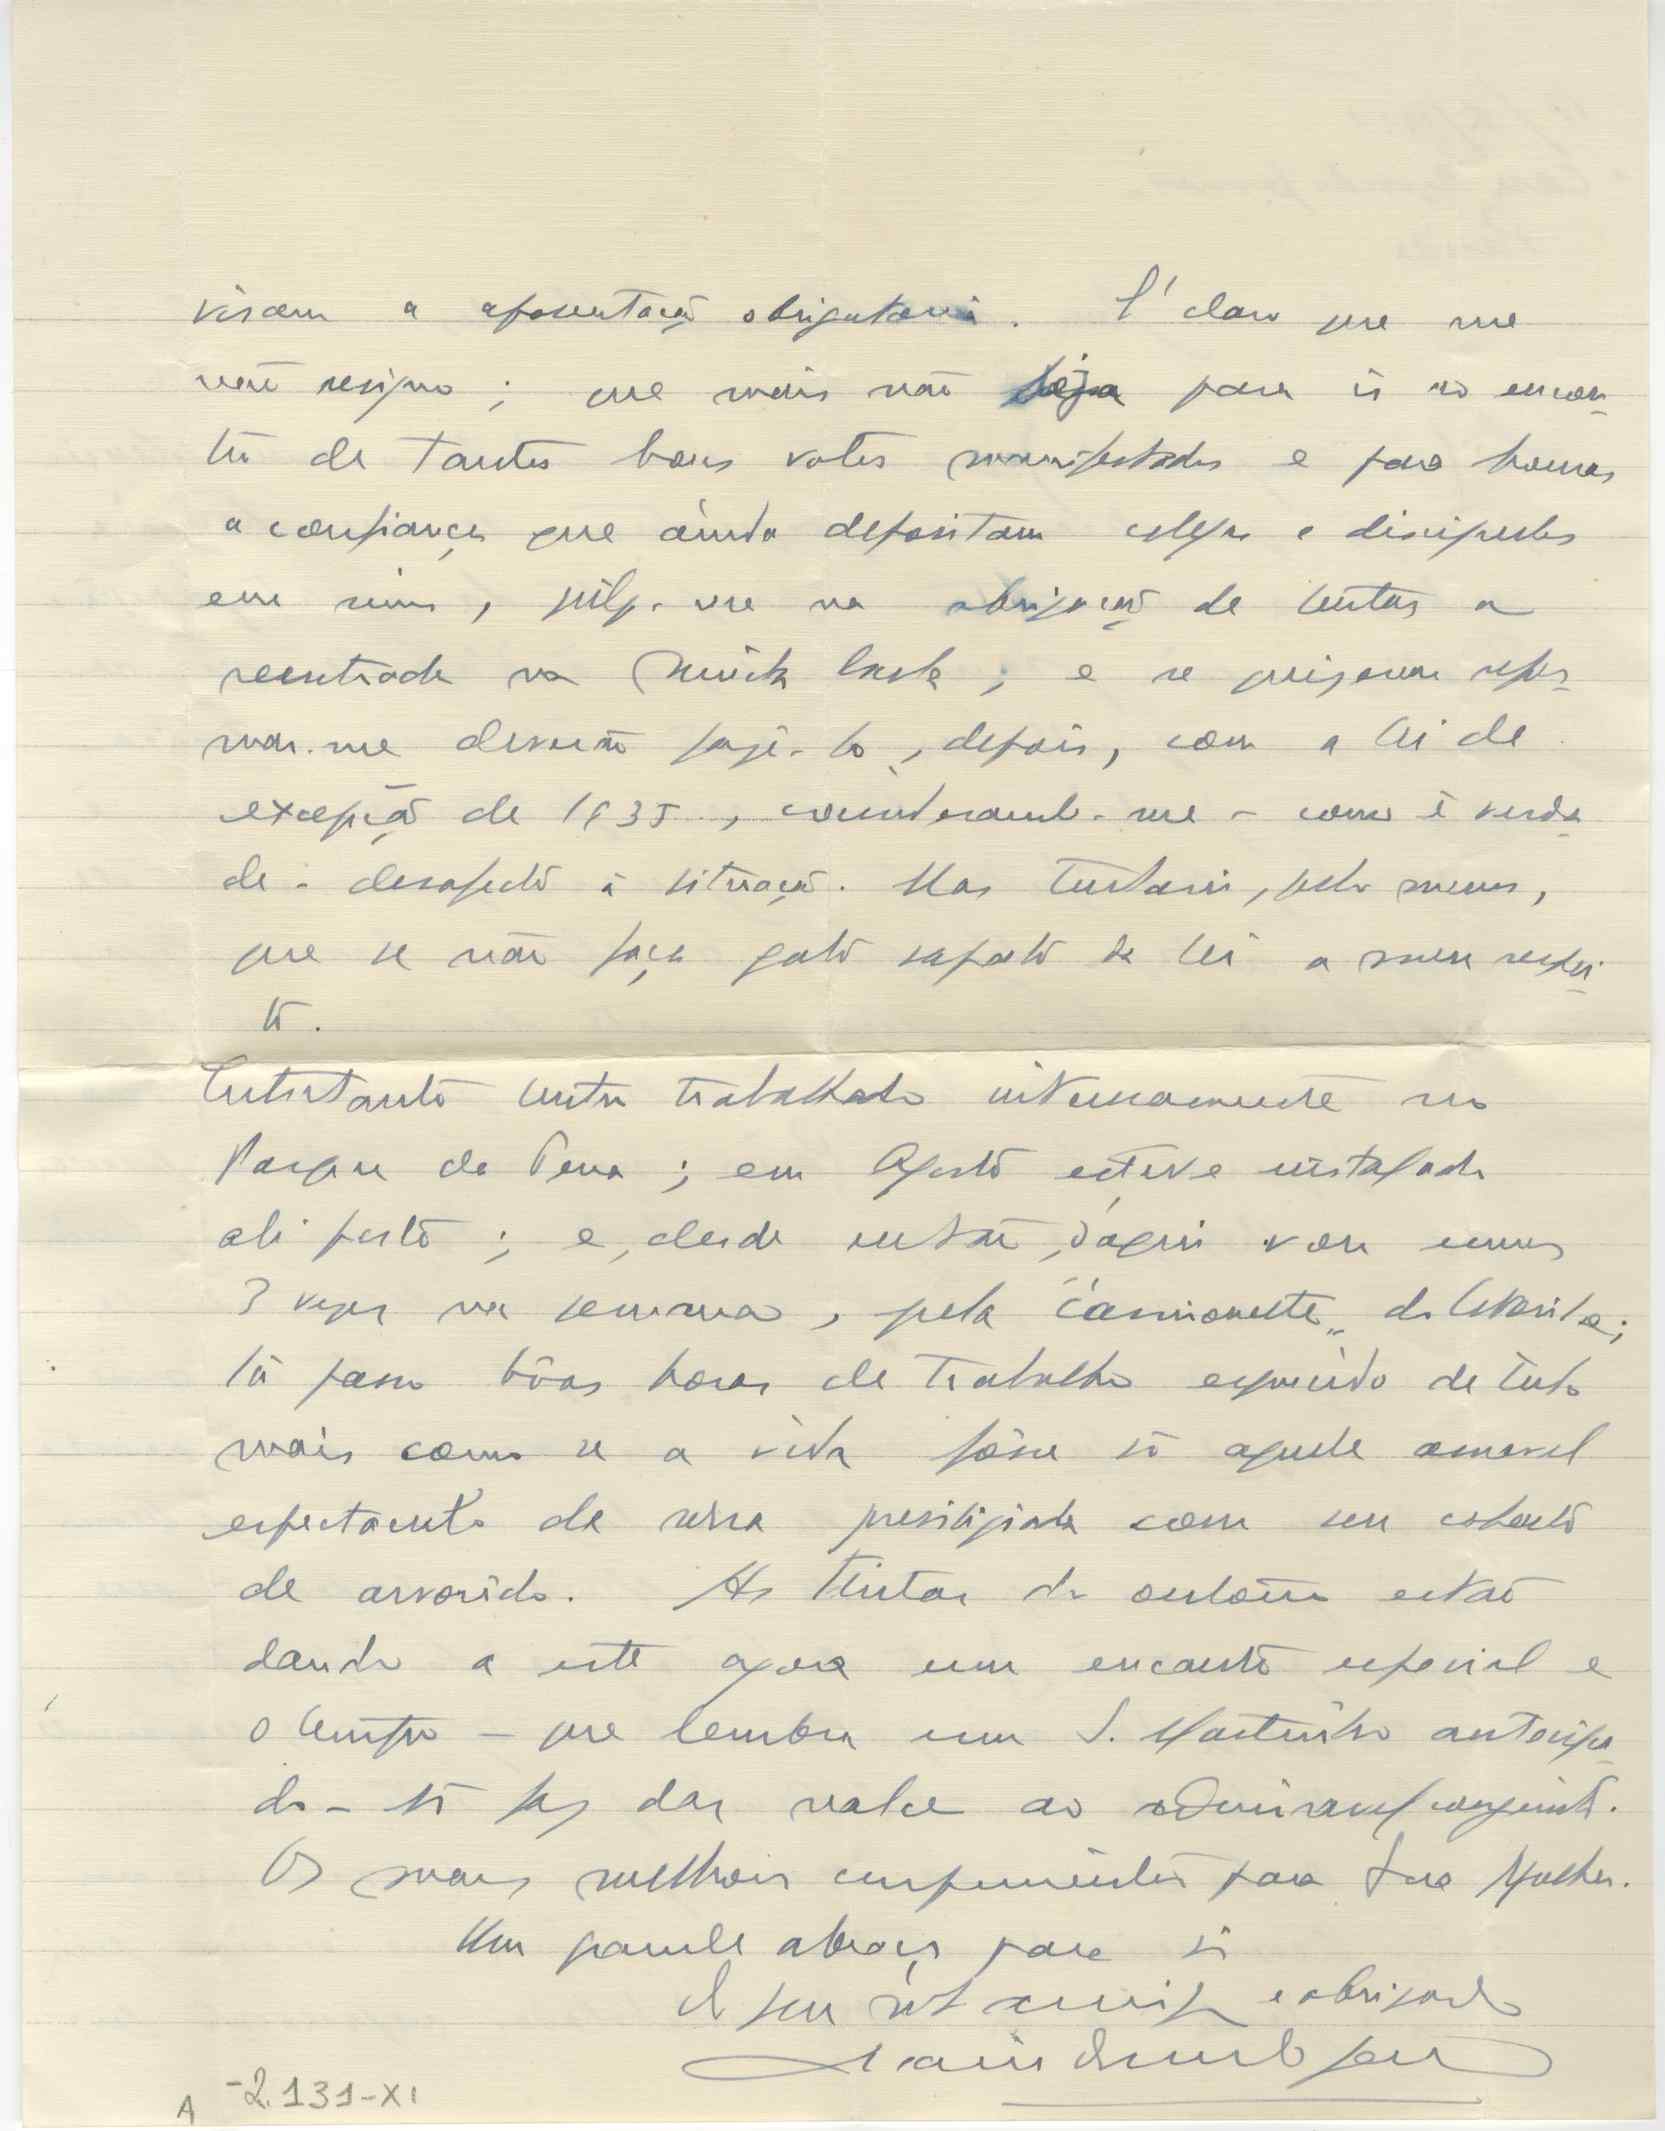 visam a aposentação obrigatoria. É claro que me
não resigno; que mais não seja para ir ao encon-
tro de tantos bons votos manifestados e para honrar
a confiança que ainda depositam colegas e discipulos
em mim, julgo-me na obrigação de tentar a
reentrada na minha Escola; e se quizerem refor-
mar-me deverão fazê-lo, depois, com a lei de
excepção de 1935, considerando-me - como é verda-
de - desafecto à situação. Mas tentarei, pelo menos,
que se não faça gato sapato da lei a meu respei-
to.
Entretanto tenho trabalhado intensamente no
Parque da Pena; em Agosto estive instalado
ali perto; e, desde então, d'aqui vou umas
3 vezes na semana, pela "camionette" do Estoril;
lá passo bôas horas de trabalho esquecido de tudo
mais como se a vida fôsse só aquele amavel
espectaculo da serra prestigiada com seu coberto
de arvorêdo. As tintas do outôno estão
dando a este agora um encanto especial e
o tempo - que lembra um S. Martinho antecipa-
do - só faz dar realce ao admiravel conjunto.
Os meus melhores cumprimentos para Sua Mulher.
Um grande abraço para si
do seu amigo e obrigado
A-2.131-XI